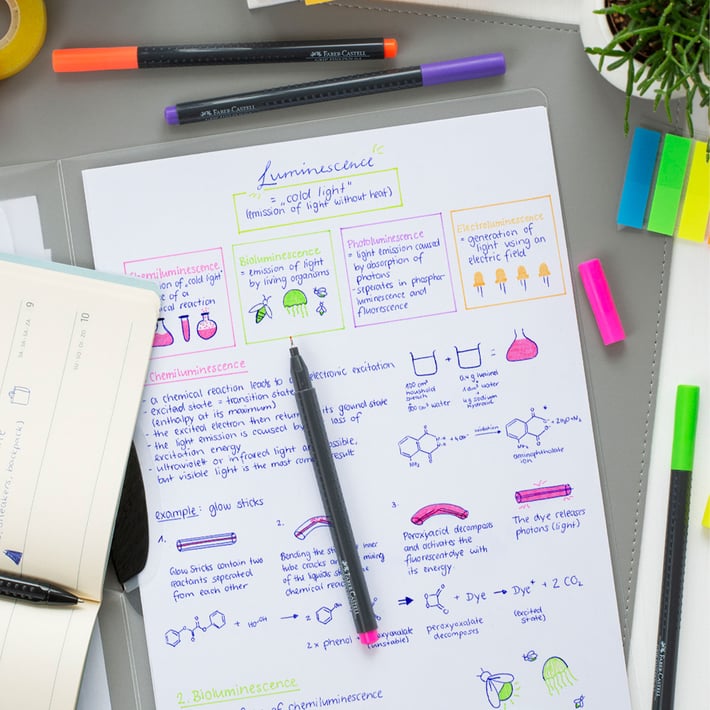 FABER CASTELL
FABER CASTELL
Luminescence
= „cold light"
(emission of light without heat)
Chemiluminescence
of „cold light"
of a
reaction
Bioluminescence
= emission of light
by living organisms
Photoluminescence
= light emission caused
by absorption of
photons
- seperates in phosphor-
luminescence and
fluorescence
Electroluminescence
= generation of
light using an
electric field
Chemiluminescence
- a chemical reaction leads to electronic excitation
- excited state = transition state
(enthalpy at its maximum)
- the excited electron then returns its ground state
- the light emission is caused by loss of
excitation energy
- ultraviolet or infrared light are possible,
but visible light is the most result
+
=
100 cm³
houshold
bleach
+
900 cm³ water
0,4g luminol
+
1 dm³ water
+
4g sodium
hydroxid
NH₂
oxidation
NH₂
aminophthalate
-ion
example: glow sticks
1.
Glow Sticks contain two
reactants seperated
from each other
2.
Bending the inner
tube cracks mixing
of the liquids
chemical
3.
Peroxyacid decomposes
and activates the
fluorescent dye with
its energy
The dye releases
photons (light)
+ H₂O₂ → 2
2 x phenol + peroxyoxalate
(unstable)
peroxyoxalate
decomposes
+ Dye → Dye* + 2 CO₂
(excited
state)
2. Bioluminescence
of chemiluminescence
9
10
sneakers, backpack)
FABER CASTELL
FABER CASTELL